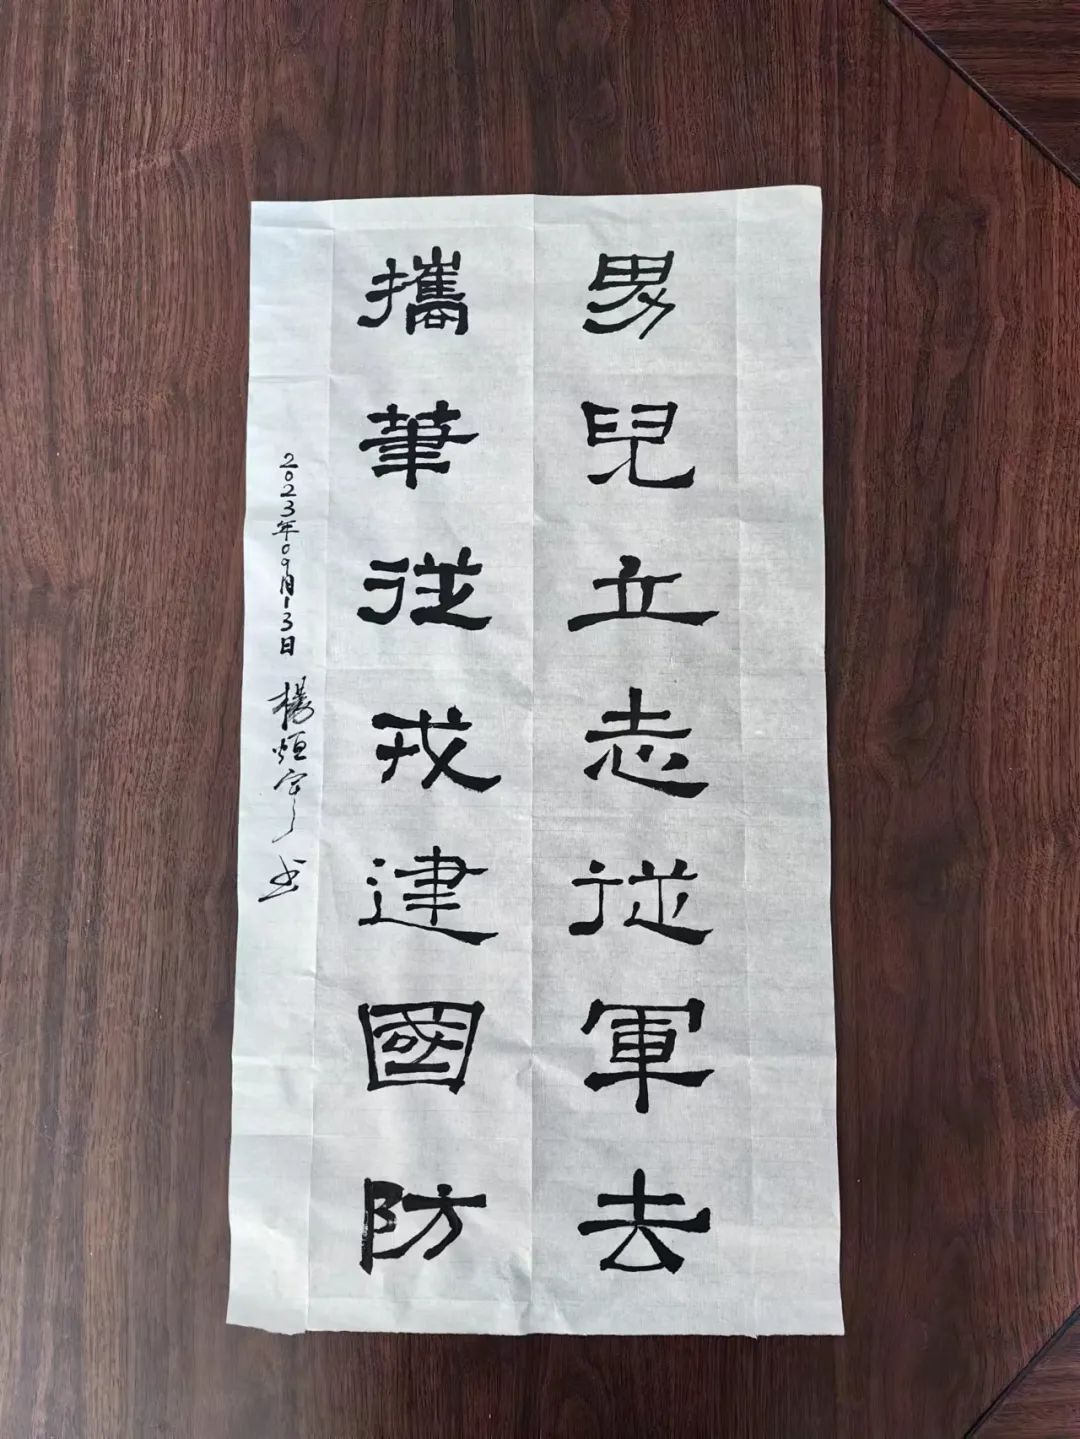 男兒立志從軍去
攜筆從戎建國防
2023年09月13日 楊恒宇书